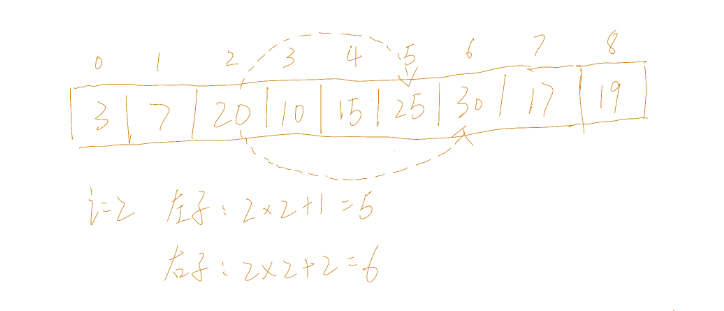 0 1 2 3 4 5 6 7 8
3 7 20 10 15 25 30 17 19
i=2 左子：2×2+1=5
右子：2×2+2=6